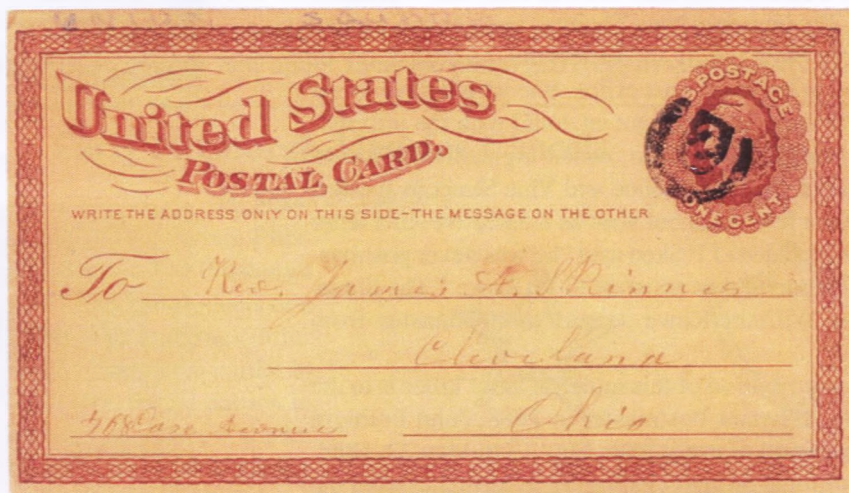 United States
POSTAL CARD.
U.S. POSTAGE
ONE CENT
WRITE THE ADDRESS ONLY ON THIS SIDE-THE MESSAGE ON THE OTHER
To Rev. James A. Skinner
Cleveland
Ohio
Case Avenue